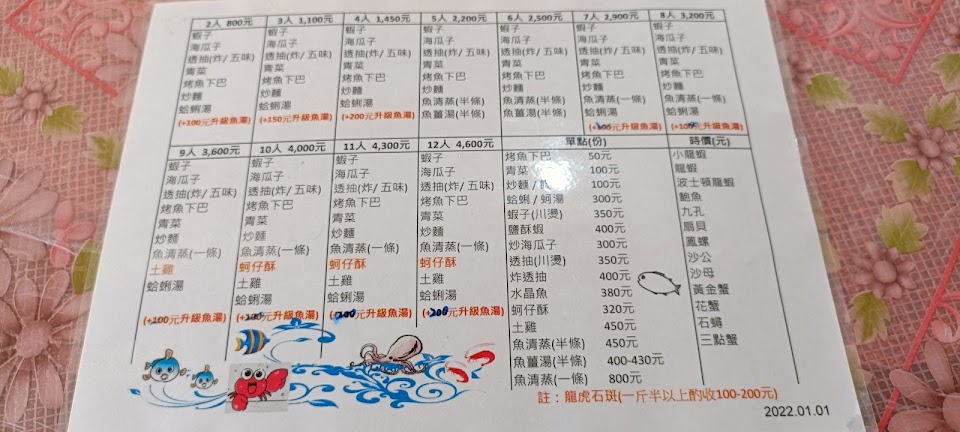 2人 800元
蝦子
海瓜子
透抽(炸/ 五味)
青菜
烤魚下巴
炒麵
蛤蜊湯
(+100元升級魚湯)
3人 1,100元
蝦子
海瓜子
透抽(炸/ 五味)
青菜
烤魚下巴
炒麵
蛤蜊湯
(+150元升級魚湯)
4人 1,450元
蝦子
海瓜子
透抽(炸/ 五味)
青菜
烤魚下巴
炒麵
蛤蜊湯
(+200元升級魚湯)
5人 2,200元
蝦子
海瓜子
透抽(炸/ 五味)
青菜
烤魚下巴
炒麵
魚清蒸(半條)
魚薑湯(半條)
6人 2,500元
蝦子
海瓜子
透抽(炸/ 五味)
青菜
烤魚下巴
炒麵
魚清蒸(半條)
魚薑湯(半條)
7人 2,900元
蝦子
海瓜子
透抽(炸/ 五味)
青菜
烤魚下巴
炒麵
魚清蒸(一條)
蛤蜊湯
元升級魚湯)
8人 3,200元
蝦子
海瓜子
透抽(炸/ 五味)
青菜
烤魚下巴
炒麵
魚清蒸(一條)
蛤蜊湯
元升級魚湯)
9人 3,600元
蝦子
海瓜子
透抽(炸/ 五味)
烤魚下巴
青菜
炒麵
魚清蒸(一條)
土雞
蛤蜊湯
(+100元升級魚湯)
10人 4,000元
蝦子
海瓜子
透抽(炸/ 五味)
烤魚下巴
青菜
炒麵
魚清蒸(一條)
蚵仔酥
土雞
蛤蜊湯
元升級魚湯)
11人 4,300元
蝦子
海瓜子
透抽(炸/ 五味)
烤魚下巴
青菜
炒麵
魚清蒸(一條)
蚵仔酥
土雞
蛤蜊湯
(+200元升級魚湯)
12人 4,600元
蝦子
海瓜子
透抽(炸/ 五味)
烤魚下巴
青菜
炒麵
魚清蒸(一條)
蚵仔酥
土雞
蛤蜊湯
(+200元升級魚湯)
單點(份)
烤魚下巴 50元
青菜 100元
炒麵 / 100元
蛤蜊 / 蚵湯 300元
蝦子(川燙) 350元
鹽酥蝦 400元
炒海瓜子 300元
透抽(川燙) 350元
炸透抽 400元
水晶魚 380元
蚵仔酥 320元
土雞 450元
魚清蒸(半條) 450元
魚薑湯(半條) 400-430元
魚清蒸(一條) 800元
時價(元)
小龍蝦
龍蝦
波士頓龍蝦
鮑魚
九孔
扇貝
鳳螺
沙公
沙母
黃金蟹
花蟹
石蟳
三點蟹
註：龍虎石斑(一斤半以上酌收100-200元)
2022.01.01